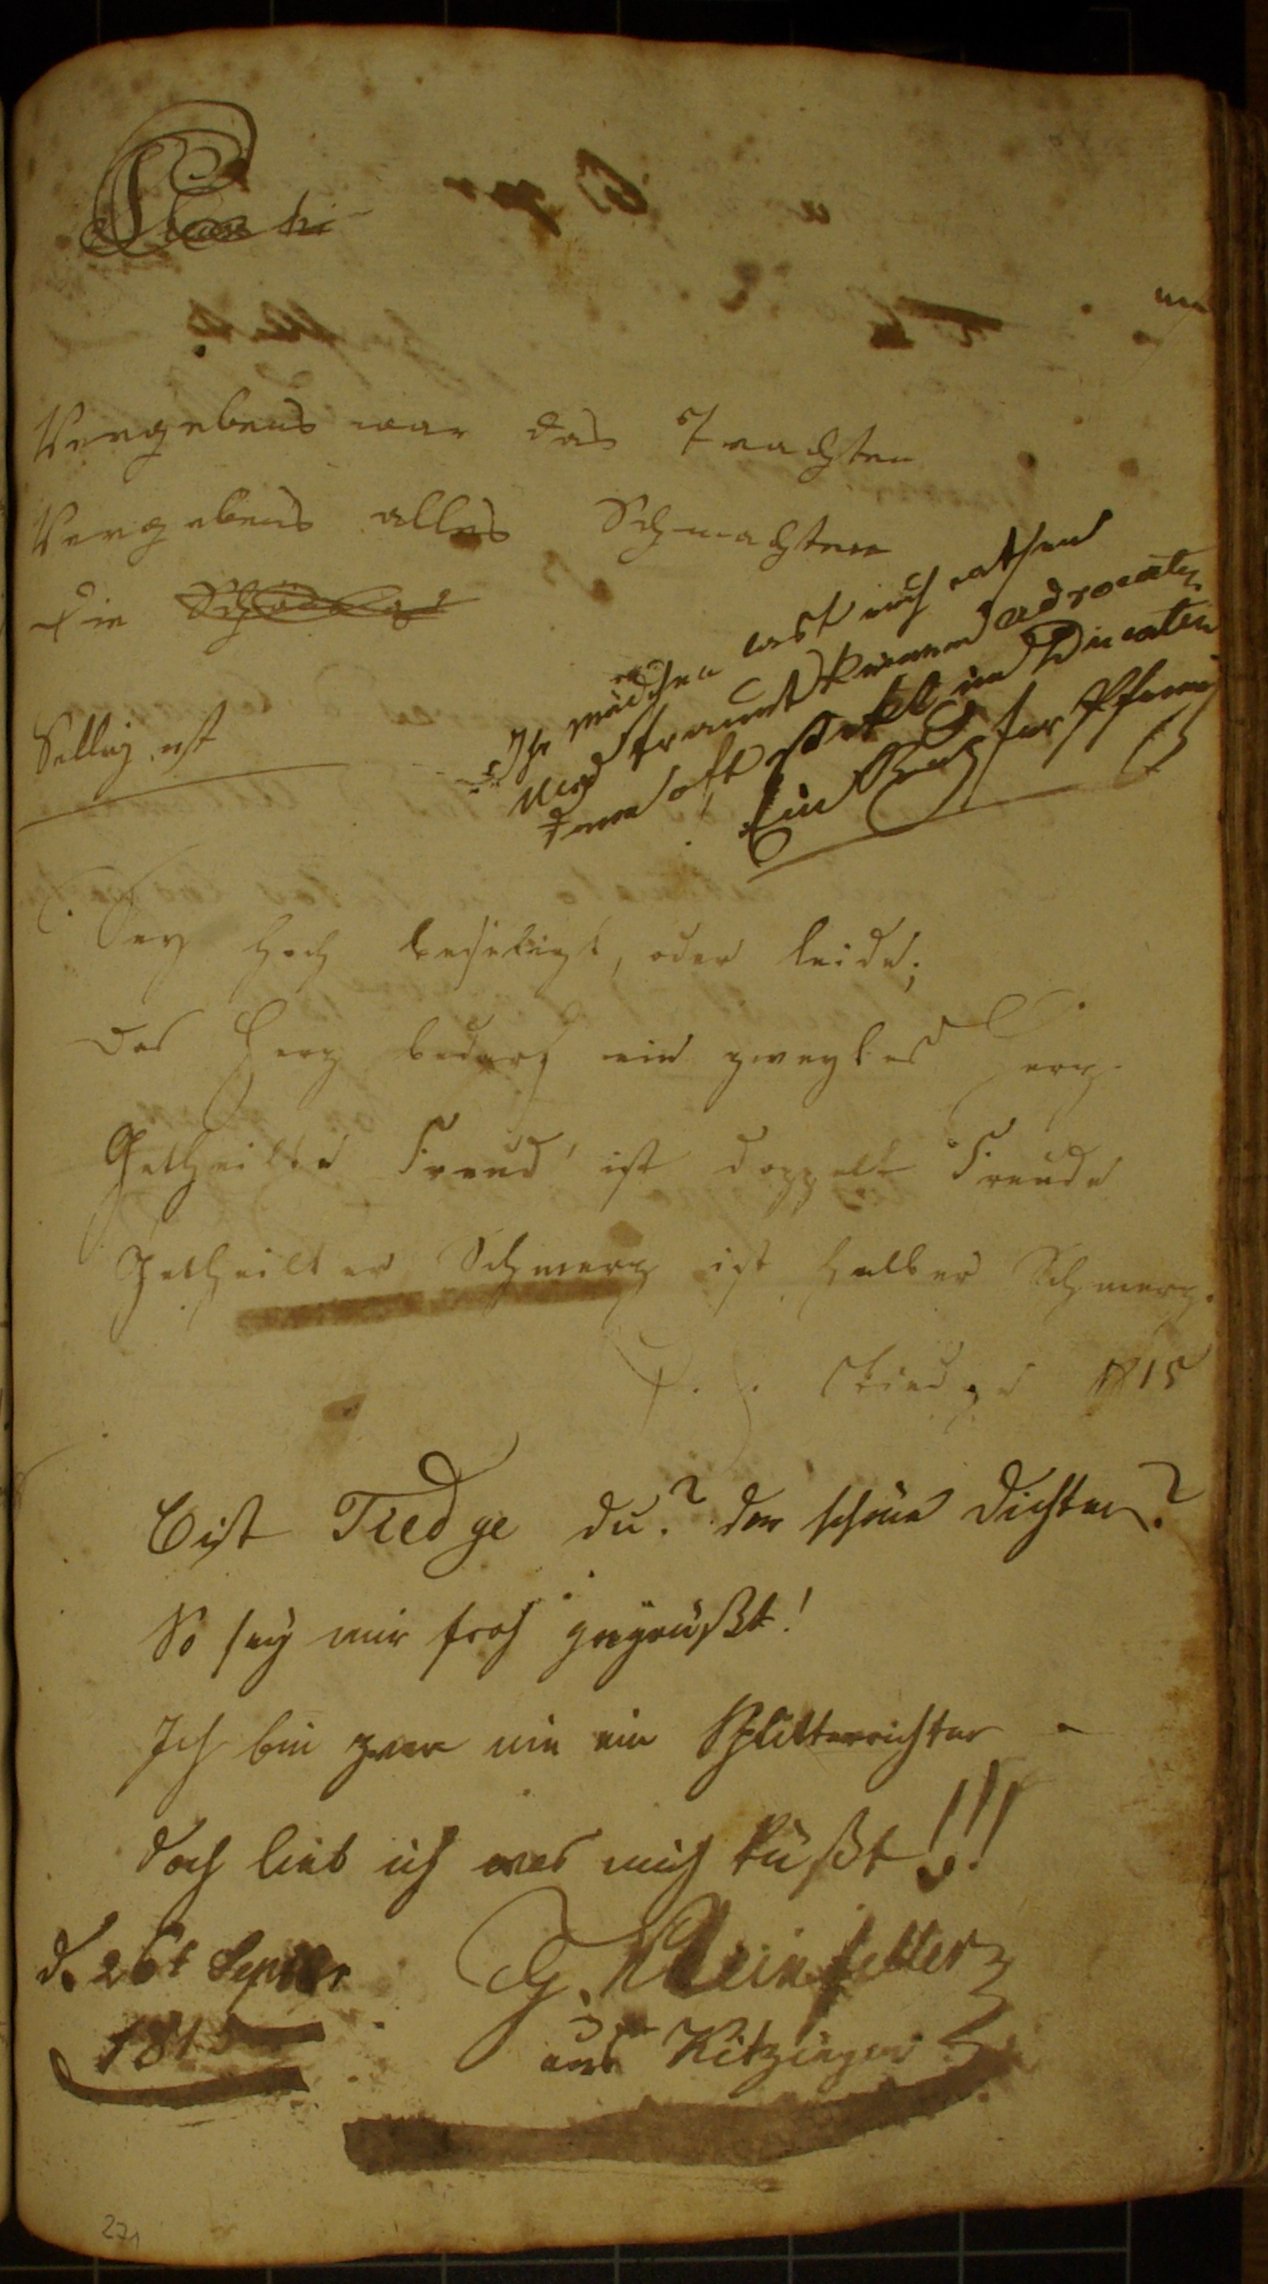 Vergebens war das Trachten
Vergebens alles Schmachten
Die
Sellig ist
Ihr Mädchen last euch rathen
Und traut keinem Advocaten
Denn oft stekt im Ducaten
Ein für Pfennig
Sey hoch beseligt, oder leide;
Das Herz bedarf ein zweytes Herz.
Getheilte Freud' ist doppelt Freude
Getheilter Schmerz ist halber Schmerz.
1815
Bist Tiedge du? der schöne Dichter?
So sey mir froh gegrüßt!
Ich bin zwar nie ein Splitterrichter –
Doch lieb ich was mich küßt!!!
d. 26t Septbr
1815
G. Kleinfeller
aus Kitzingen
271